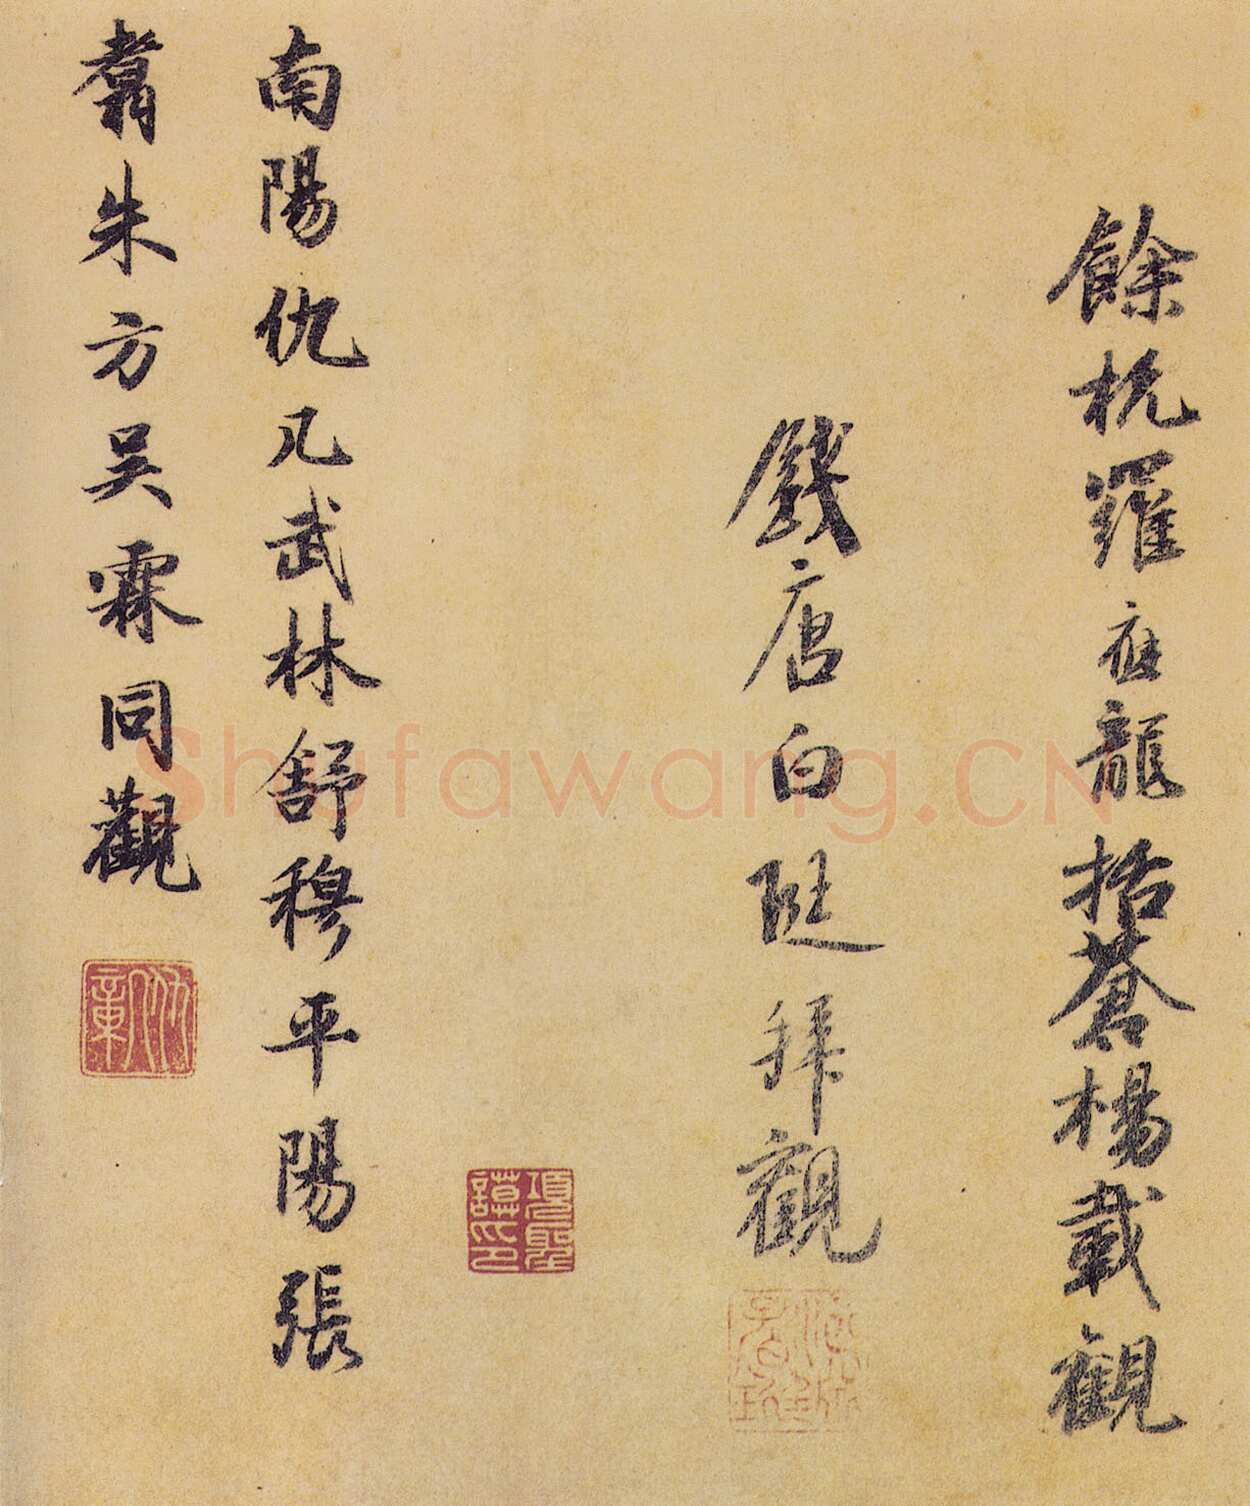 餘杭羅應龍括蒼楊載觀
錢唐白珽拜觀
項聖謨印
南陽仇几武林舒穆平陽張
翥朱方吴霖同觀
Shufawang.CN